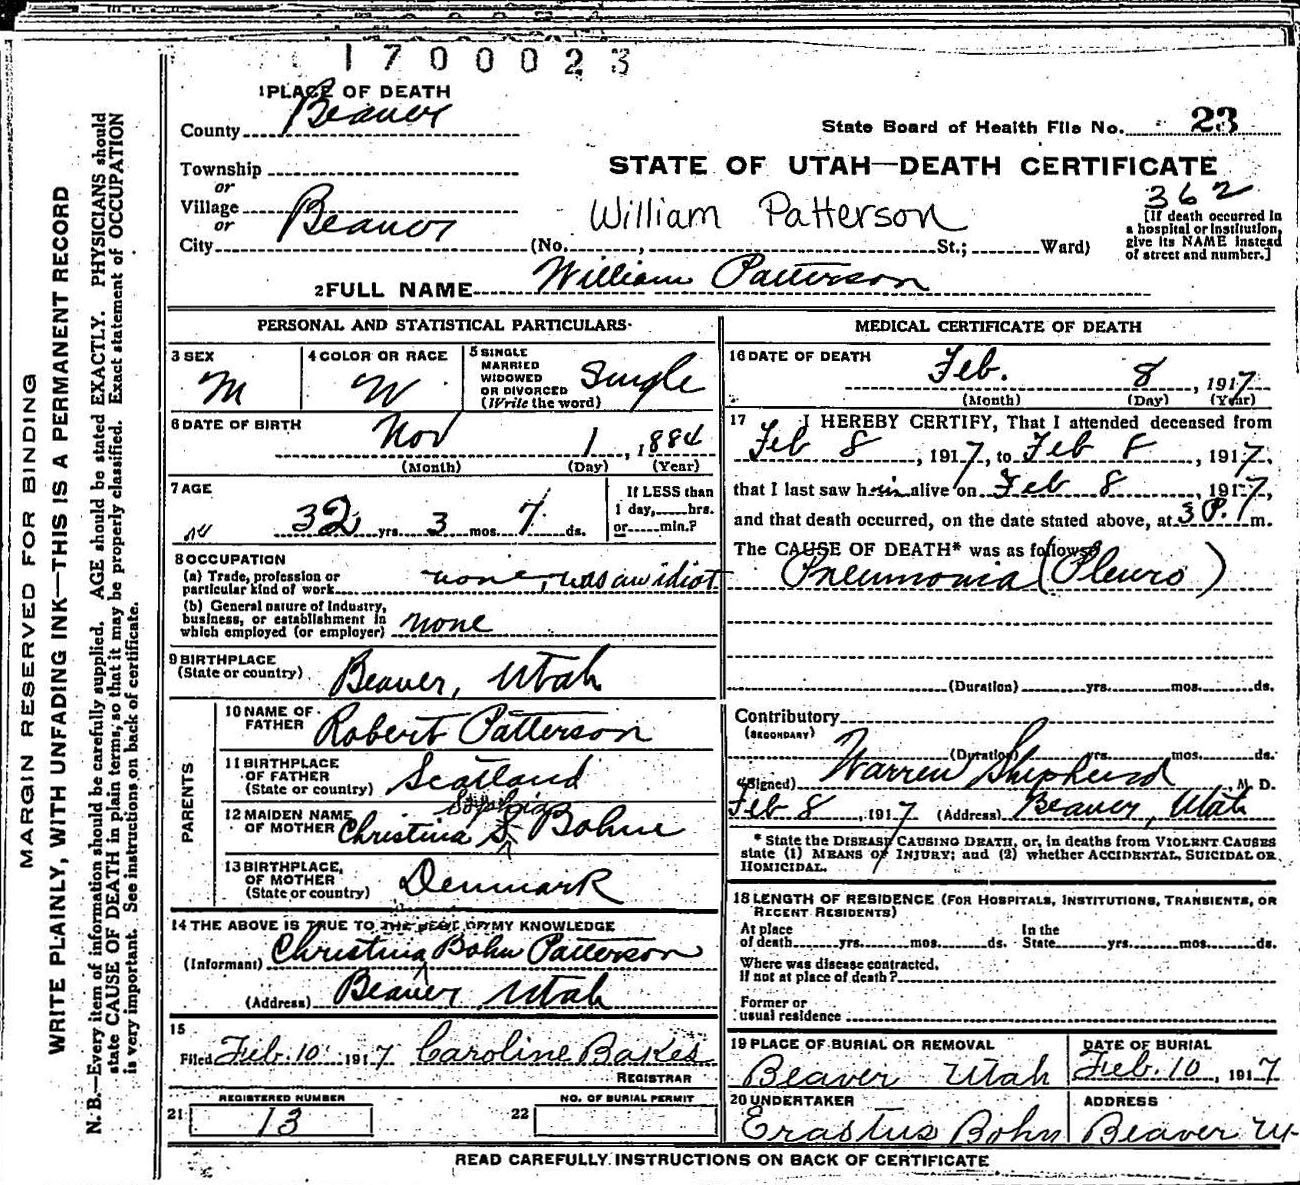 1700023
1 PLACE OF DEATH
County Beaver
State Board of Health File No. 23
Township
or
Village
or
City Beaver
STATE OF UTAH—DEATH CERTIFICATE
362
[If death occurred in
a hospital or institution,
give its NAME instead
of street and number.]
William Patterson
(No. , St.; Ward)
2 FULL NAME William Patterson
PERSONAL AND STATISTICAL PARTICULARS
3 SEX
M
4 COLOR OR RACE
W
5 SINGLE
MARRIED
WIDOWED
OR DIVORCED
(Write the word)
Single
6 DATE OF BIRTH
Nov 1, 1884
(Month) (Day) (Year)
7 AGE
32 yrs. 3 mos. 7 ds.
If LESS than
1 day, hrs.
or min.?
8 OCCUPATION
(a) Trade, profession or
particular kind of work none, was an idiot
(b) General nature of Industry,
business, or establishment in
which employed (or employer) none
9 BIRTHPLACE
(State or country) Beaver, Utah
PARENTS
10 NAME OF
FATHER Robert Patterson
11 BIRTHPLACE
OF FATHER
(State or country) Scotland
12 MAIDEN NAME
OF MOTHER Christina S. Bohne
13 BIRTHPLACE,
OF MOTHER
(State or country) Denmark
14 THE ABOVE IS TRUE TO THE BEST OF MY KNOWLEDGE
(Informant) Christina Bohn Patterson
(Address) Beaver, Utah
15
Filed Feb. 10 1917 Caroline Bakes
REGISTRAR
21 REGISTERED NUMBER
13
22 NO. OF BURIAL PERMIT
MEDICAL CERTIFICATE OF DEATH
16 DATE OF DEATH
Feb. 8, 1917
(Month) (Day) (Year)
17 I HEREBY CERTIFY, That I attended deceased from
Feb 8, 1917, to Feb 8, 1917,
that I last saw him alive on Feb 8, 1917,
and that death occurred, on the date stated above, at 3 P. m.
The CAUSE OF DEATH* was as follows:
Pneumonia (Pleuro)
(Duration) yrs. mos. ds.
Contributory
(SECONDARY)
(Duration) yrs. mos. ds.
(Signed) Warren Shepherd M. D.
Feb 8, 1917 (Address) Beaver, Utah
* State the DISEASE CAUSING DEATH, or, in deaths from VIOLENT CAUSES
state (1) MEANS OF INJURY; and (2) whether ACCIDENTAL, SUICIDAL OR
HOMICIDAL.
18 LENGTH OF RESIDENCE (FOR HOSPITALS, INSTITUTIONS, TRANSIENTS, OR
RECENT RESIDENTS)
At place
of death yrs. mos. ds.
In the
State yrs. mos. ds.
Where was disease contracted,
If not at place of death?
Former or
usual residence
19 PLACE OF BURIAL OR REMOVAL
Beaver Utah
DATE OF BURIAL
Feb. 10, 1917
20 UNDERTAKER
Erastus Bohn
ADDRESS
Beaver U
READ CAREFULLY INSTRUCTIONS ON BACK OF CERTIFICATE
MARGIN RESERVED FOR BINDING
WRITE PLAINLY, WITH UNFADING INK—THIS IS A PERMANENT RECORD
N. B.—Every item of information should be carefully supplied. AGE should be stated EXACTLY. PHYSICIANS should
state CAUSE OF DEATH in plain terms, so that it may be properly classified. Exact statement of OCCUPATION
is very important. See instructions on back of certificate.